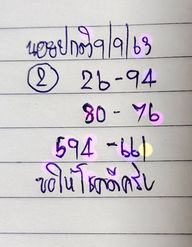 นอยปกติ9/9/63
② 26-94
80-76
594-661
ขอให้โชคดีครับ